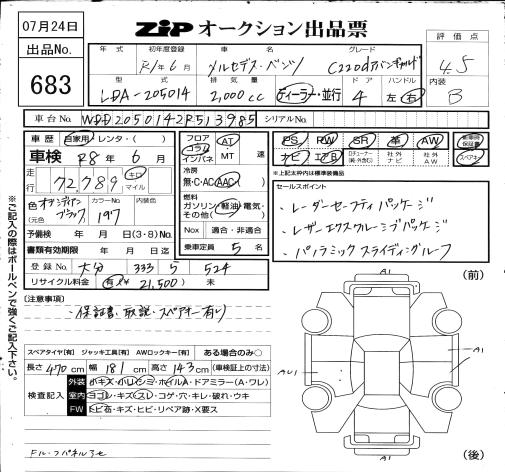 07月24日
ZIP オークション出品票
出品No.
683
評価点
4.5
内装
B
年式 初年度登録 車名 グレード
R1年6月 メルセデス・ベンツ C220dアバンギャルド
型式 排気量 ドア ハンドル
LDA-205014 2,000cc ディーラー・並行 4 左 右
車台No. WDD2050142R513985 シリアルNo.
車歴 自家用・レンタ・( )
車検 R8年6月
走行 72,789 キロ マイル
色(元色) オブシディアンブラック カラーNo. 197
予備検 年 月 日(3・8)No.
書類有効期限 年 月 日迄
登録No. 大分 333 ら 524
リサイクル料金 有(¥ 21,500) 未
フロア コラム インパネ AT MT 速
冷房 無・C・AC・AAC
燃料 ガソリン・軽油・電気・その他( )
Nox 適合・非適合
乗車定員 5名
PS PW SR 革 AW
ナビ エアB 社外ナビ 社外AW
新車時保証書
スペアキー
※上記太枠内は標準装備品
セールスポイント
・レーダーセーフティパッケージ
・レザーエクスクルーシブパッケージ
・パノラミックスライディングルーフ
(注意事項)
・保証書、取説、スペアキー有り
スペアタイヤ[有] ジャッキ工具[有] AWロックキー[有] ある場合のみ○
長さ 470cm 幅 181cm 高さ 143cm (車検証上の寸法)
検査記入
外装 小キズ・小ハシミ・ホイルA・ドアミラー(A・ワレ)
室内 ヨゴレ・キズ・スレ・コゲ・穴・キレ・破れ・ウキ
FW トビ石・キズ・ヒビ・リペア跡・X要ス
※ご記入の際はボールペンで強くご記入下さい。
(前)
A1
AU1
A1
A1
(後)